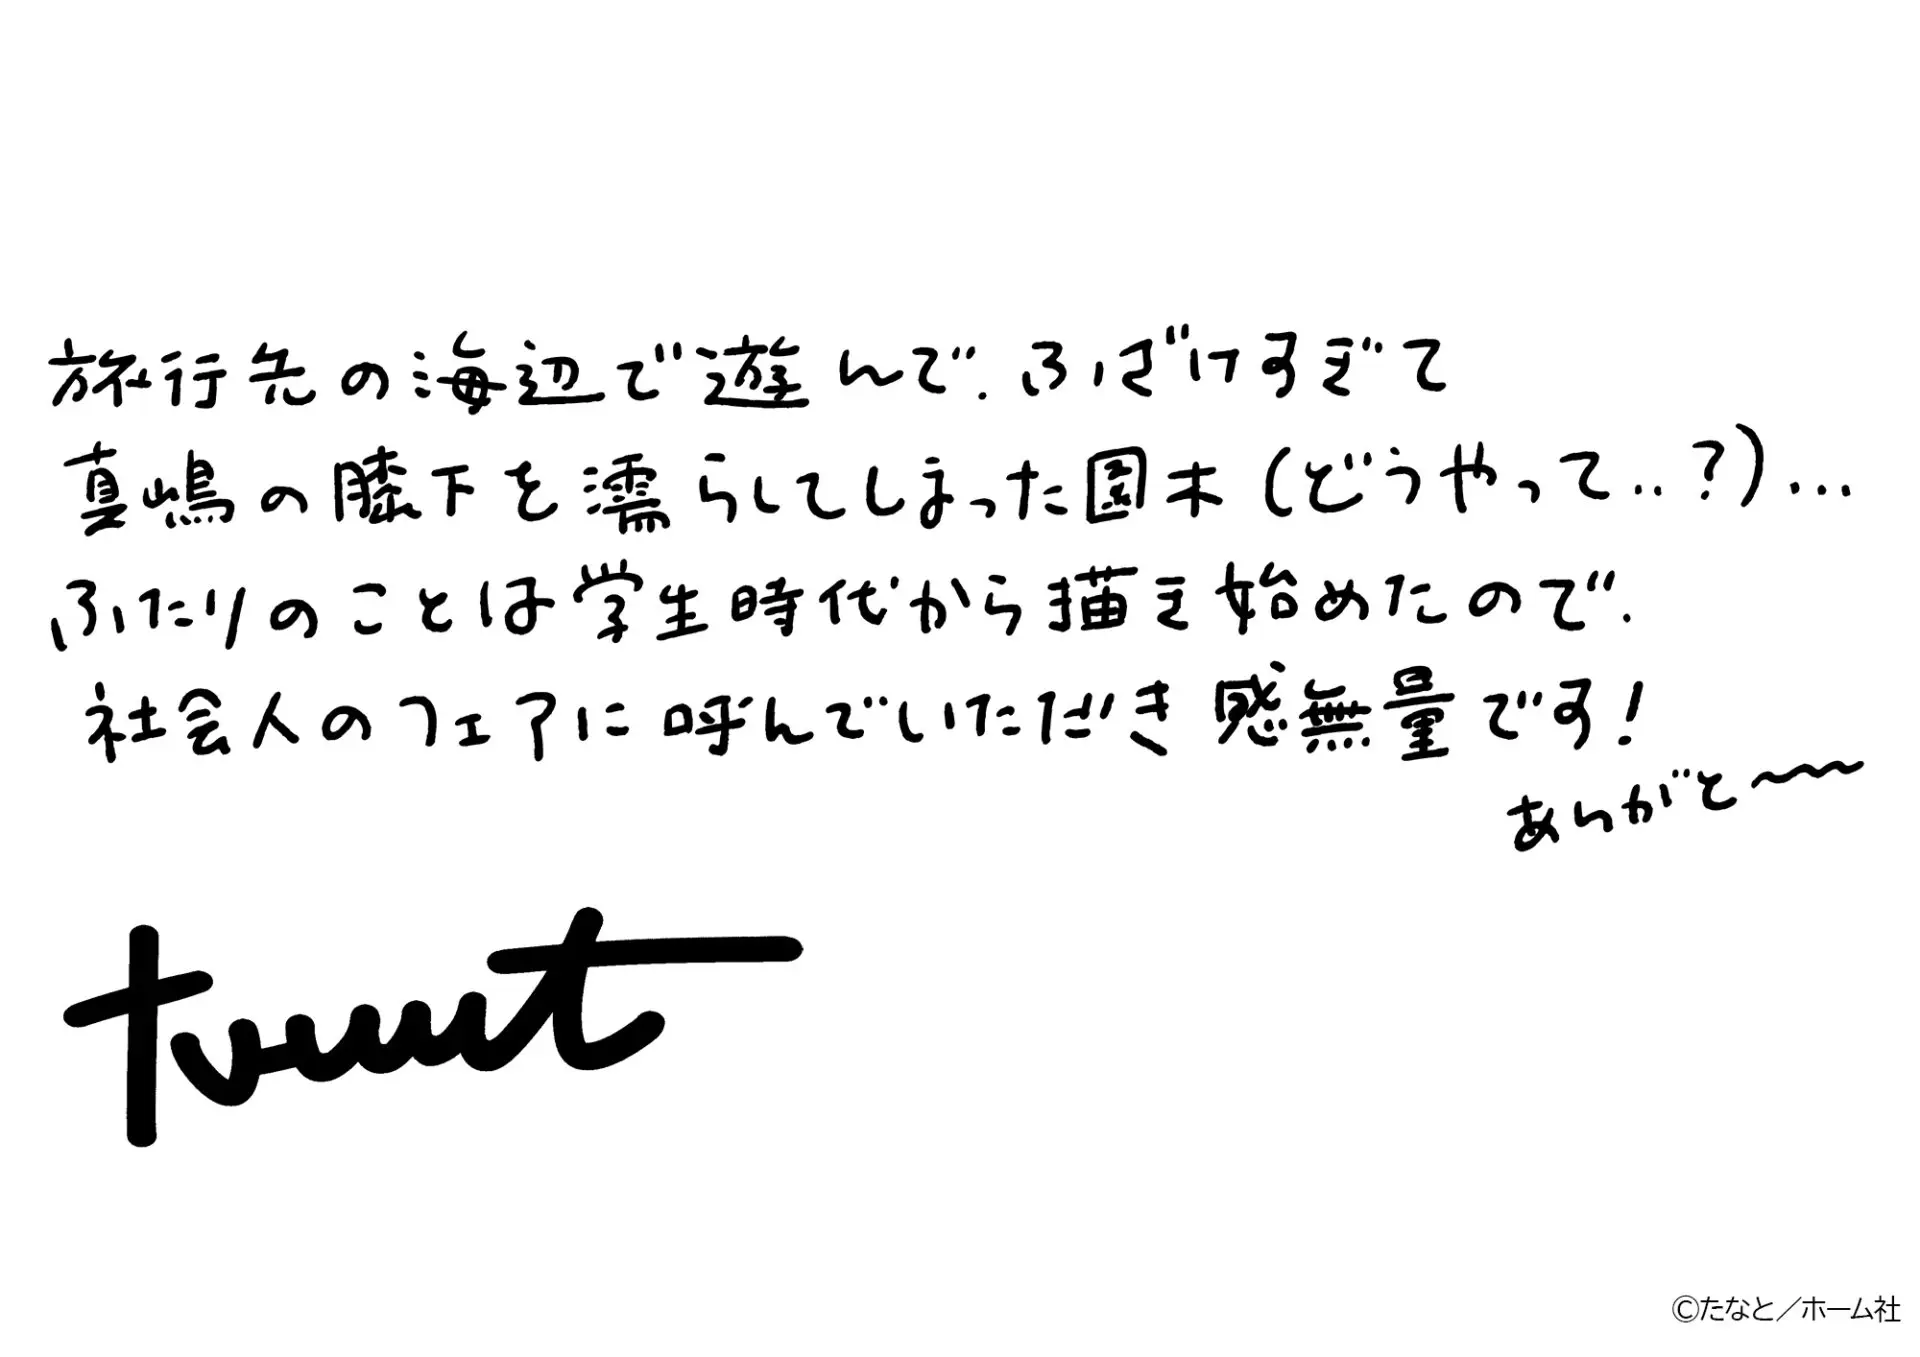 旅行先の海辺で遊んで、ふざけすぎて
真嶋の膝下を濡らしてしまった園木(どうやって..?)...
ふたりのことは学生時代から描き始めたので、
社会人のフェアに呼んでいただき感無量です!
ありがと〜〜
©たなと/ホーム社